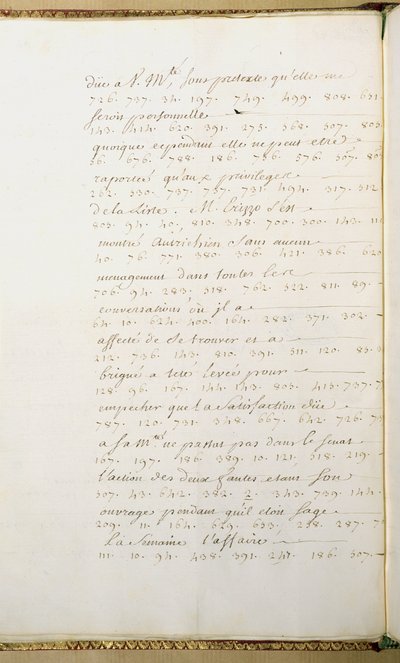 düe a V. M.té, sous pretexte qu'elle me
726. 737. 34. 197. 749. 499. 808. 631.
seroit personnelle
143. 414. 620. 391. 273. 368. 307. 803
quoique cependant elle ne peut etre
36. 676. 788. 186. 736. 376. 307. 80
raportée qu'aux privileges
262. 330. 737. 737. 731. 494. 317. 312
de la Liste. M. Erizzo s'est
803. 94. 40. 810. 348. 700. 300. 143. 11
montré Autrichien sans aucun
40. 76. 771. 380. 306. 421. 386. 620
menagement dans toutes les
706. 94. 283. 318. 762. 322. 811. 89.
conversations, où il a
64. 10. 624. 400. 164. 282. 371. 302.
affecté de se trouver et a
212. 736. 143. 810. 391. 311. 120. 83.
brigué a tête levée pour
128. 96. 167. 144. 143. 803. 413. 737. 7
empecher que la satisfaction düe
787. 120. 731. 348. 667. 642. 726. 73
a sa M.té ne passat pas dans le senat
167. 197. 186. 389. 10. 121. 318. 219.
l'action des deux fautes etant son
307. 43. 642. 382. 2. 343. 739. 144.
ouvrage pendant qu'il etoit sage
209. 11. 164. 629. 633. 238. 287. 7
la semaine l'affaire
111. 10. 94. 438. 391. 247. 186. 307.